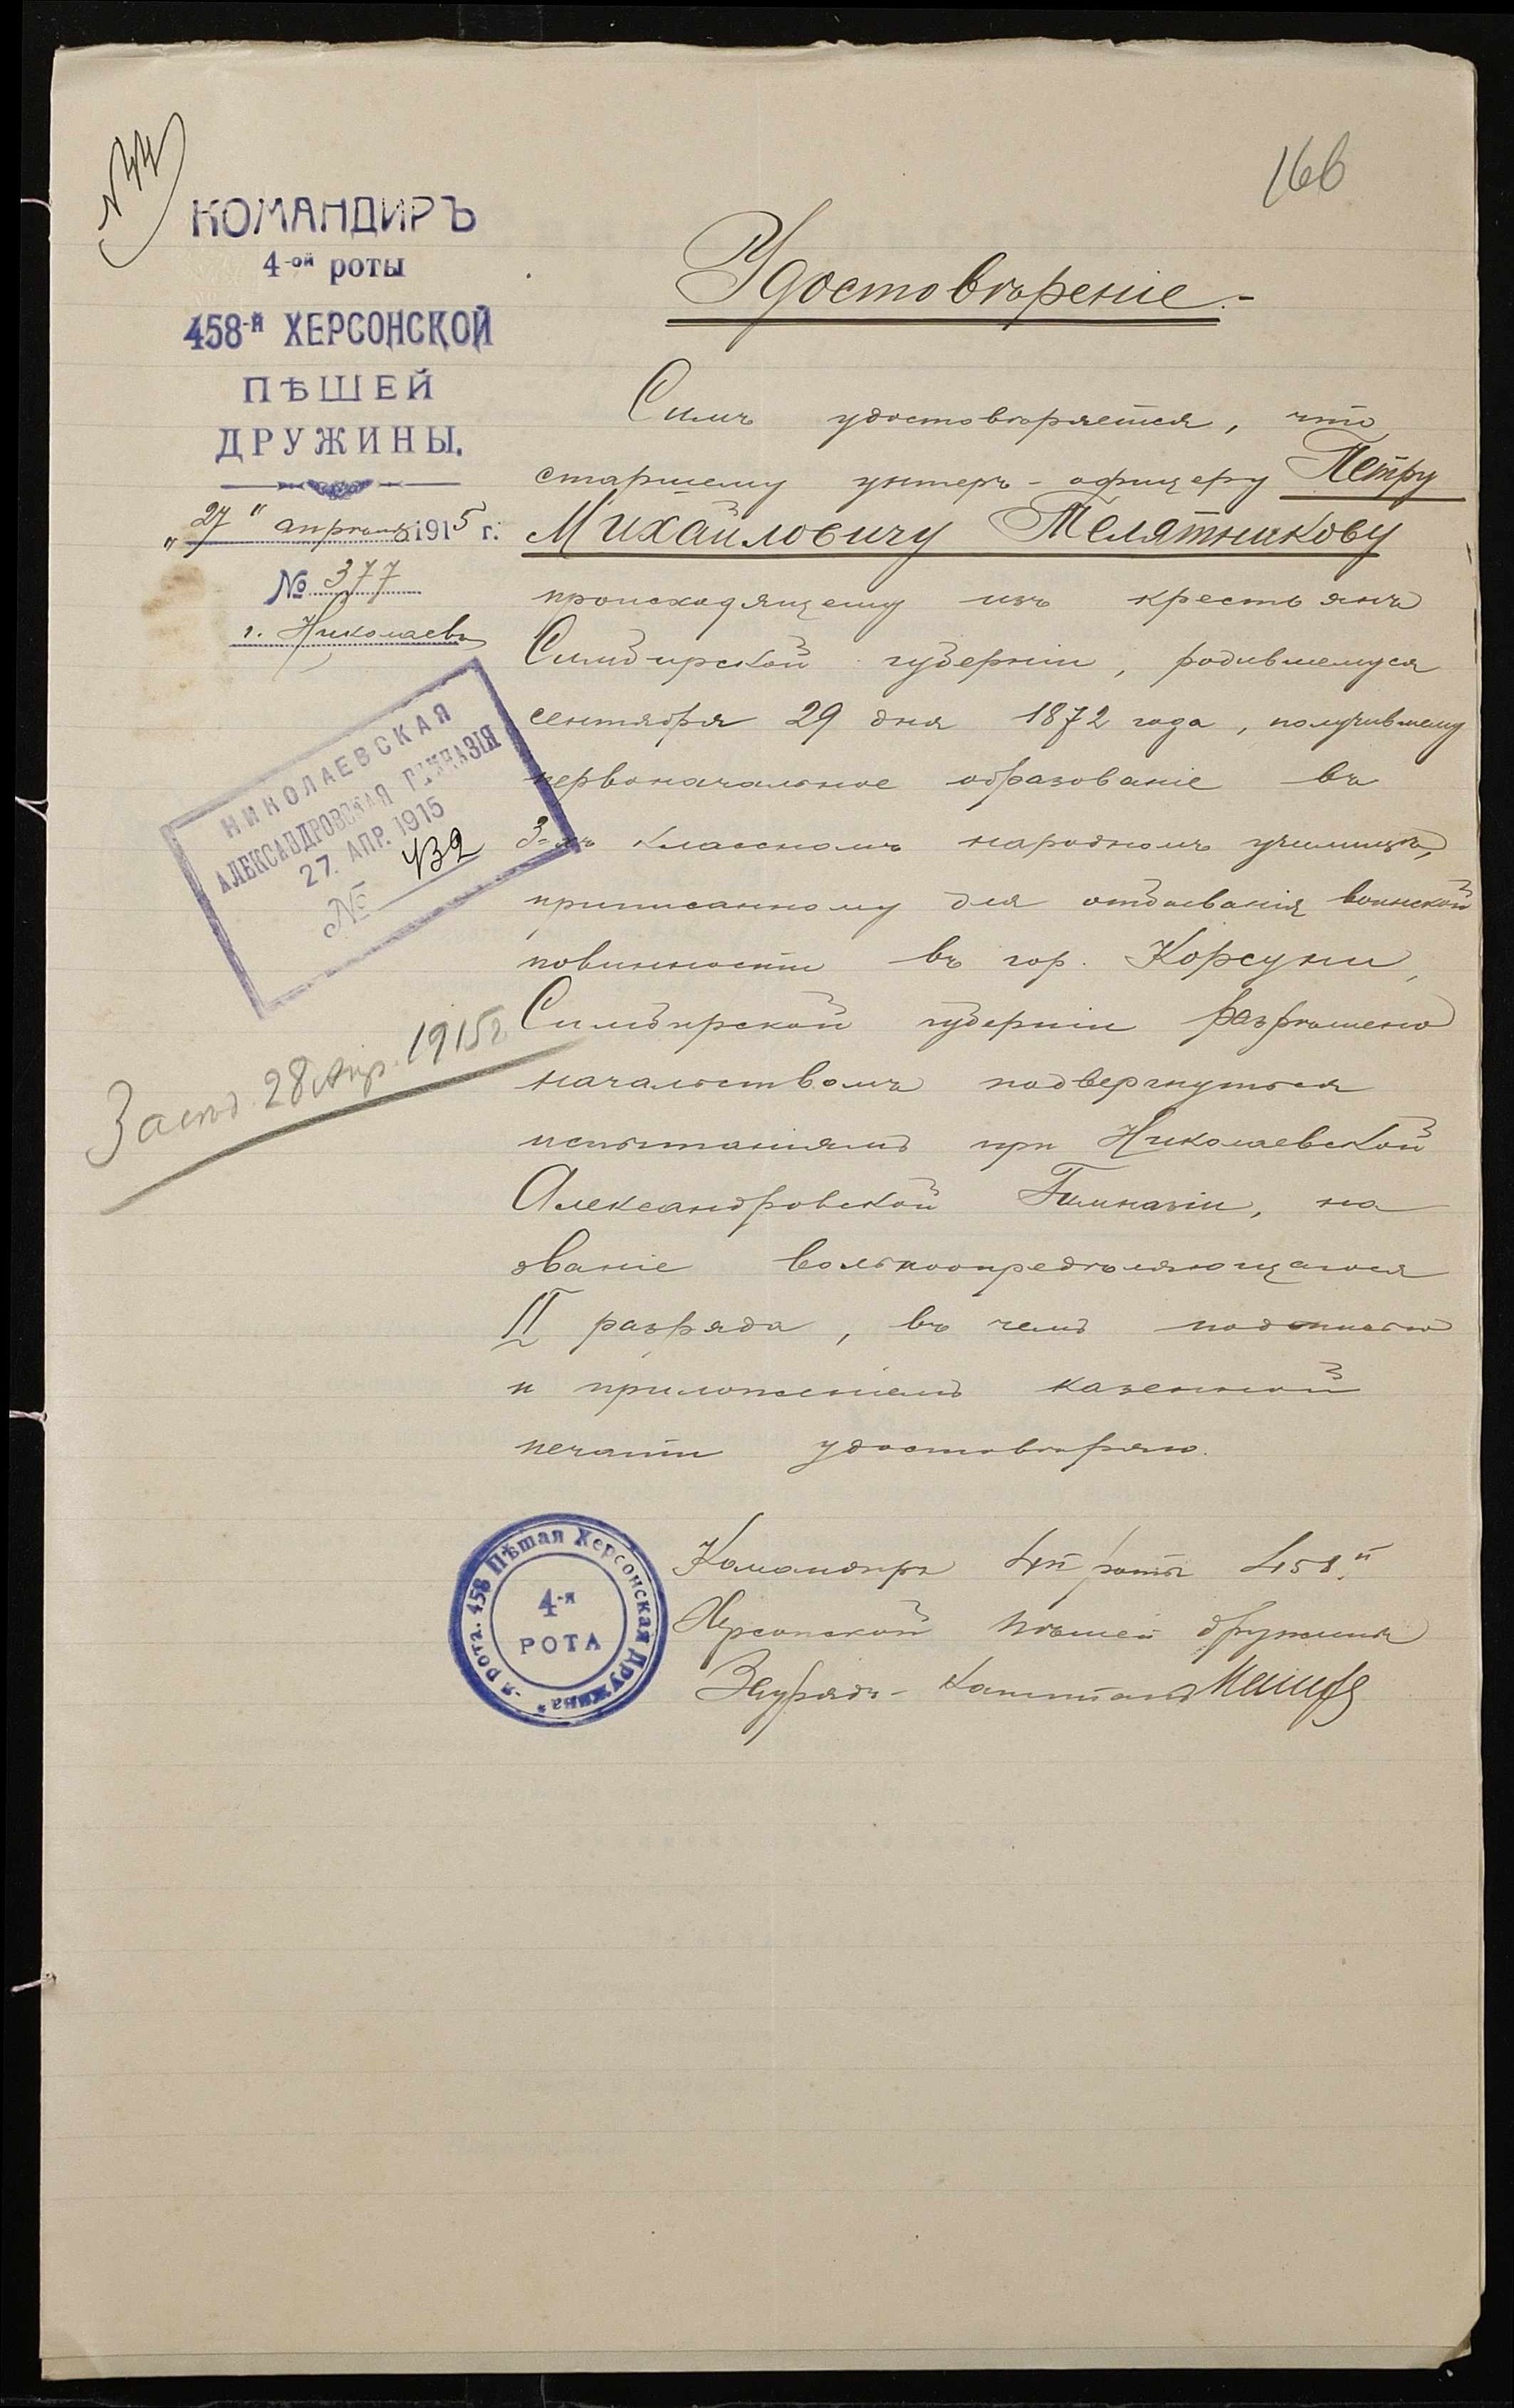 166
КОМАНДИРЪ
4-ой роты
458-й ХЕРСОНСКОЙ
ПѢШЕЙ
ДРУЖИНЫ.
„27" апрѣля 1915 г.
№ 377
г. Николаевъ
НИКОЛАЕВСКАЯ
АЛЕКСАНДРОВСКАЯ ГИМНАЗІЯ
27. АПР. 1915
№ 432
28 Апр. 1915 г.
Удостовѣреніе.-
Симъ удостовѣряется, что
старшему унтеръ-офицеру Петру
Михайловичу Телятникову
происходящему изъ крестьянъ
Симбирской губерніи, родившемуся
сентября 29 дня 1872 года, получившему
первоначальное образованіе въ
3-хъ классномъ народномъ училищѣ,
приписанному для отбыванія воинской
повинности въ гор. Корсуни,
Симбирской губерніи разрѣшено
начальствомъ подвергнуться
испытаніямъ при Николаевской
Александровской Гимназіи, на
званіе вольноопредѣляющагося
II разряда, въ чемъ подписью
и приложеніемъ казенной
печати удостовѣряю.
Командиръ 4й роты 458й
Херсонской пѣшей дружины
Заурядъ-Капитанъ
-я рота. 458 Пѣшая Херсонская Дружина*
4-я
РОТА